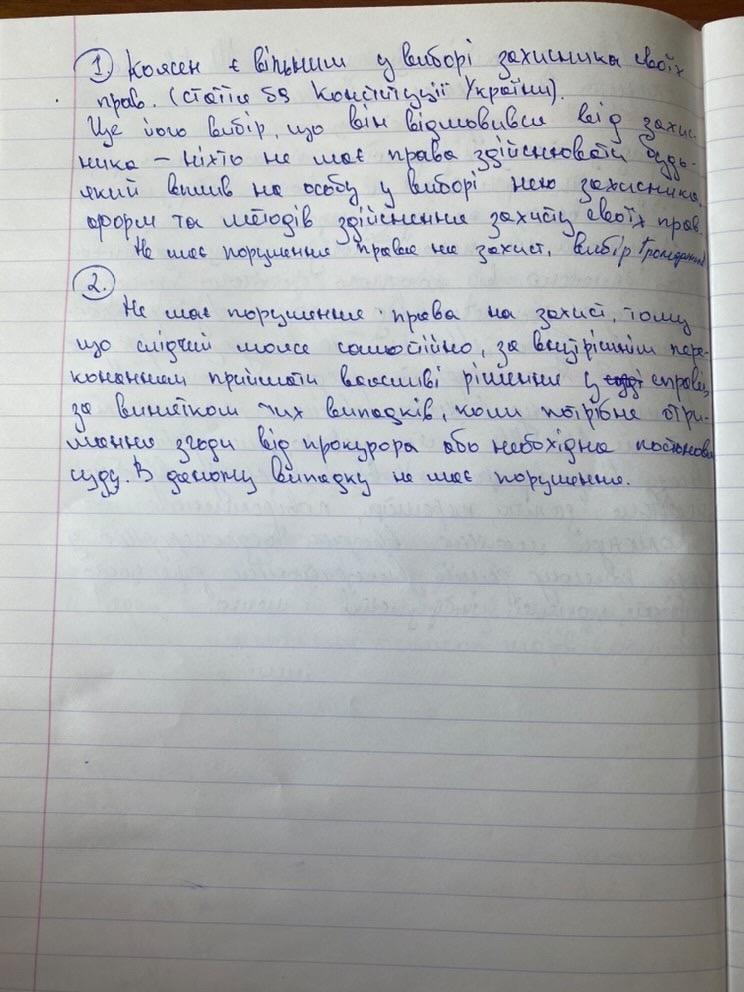 1. Кожен є вільним у виборі захисника своїх
прав. (стаття 59 Конституції України).
Це його вибір, що він відмовився від захис-
ника – ніхто не має права здійснювати будь-
який вплив на особу у виборі нею захисника,
форм та методів здійснення захисту своїх прав.
Не має порушення права на захист, вибір
2.
Не має порушення права на захист, тому
що слідчий може самостійно, за внутрішнім пере-
конанням приймати важливі рішення у справі,
за винятком тих випадків, коли потрібне отри-
мання згоди від прокурора або необхідна постанова
суду. В даному випадку не має порушення.